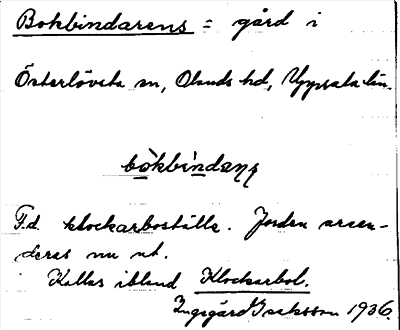 Bokbindarens = gård i
Österlövsta sn, Olands hd, Uppsala län.
bòkbìndaɳʂ
F.d. klockarboställe. Jorden arren-
deras nu ut.
Kallas ibland Klockarbol.
Ingegärd Isaksson 1936.